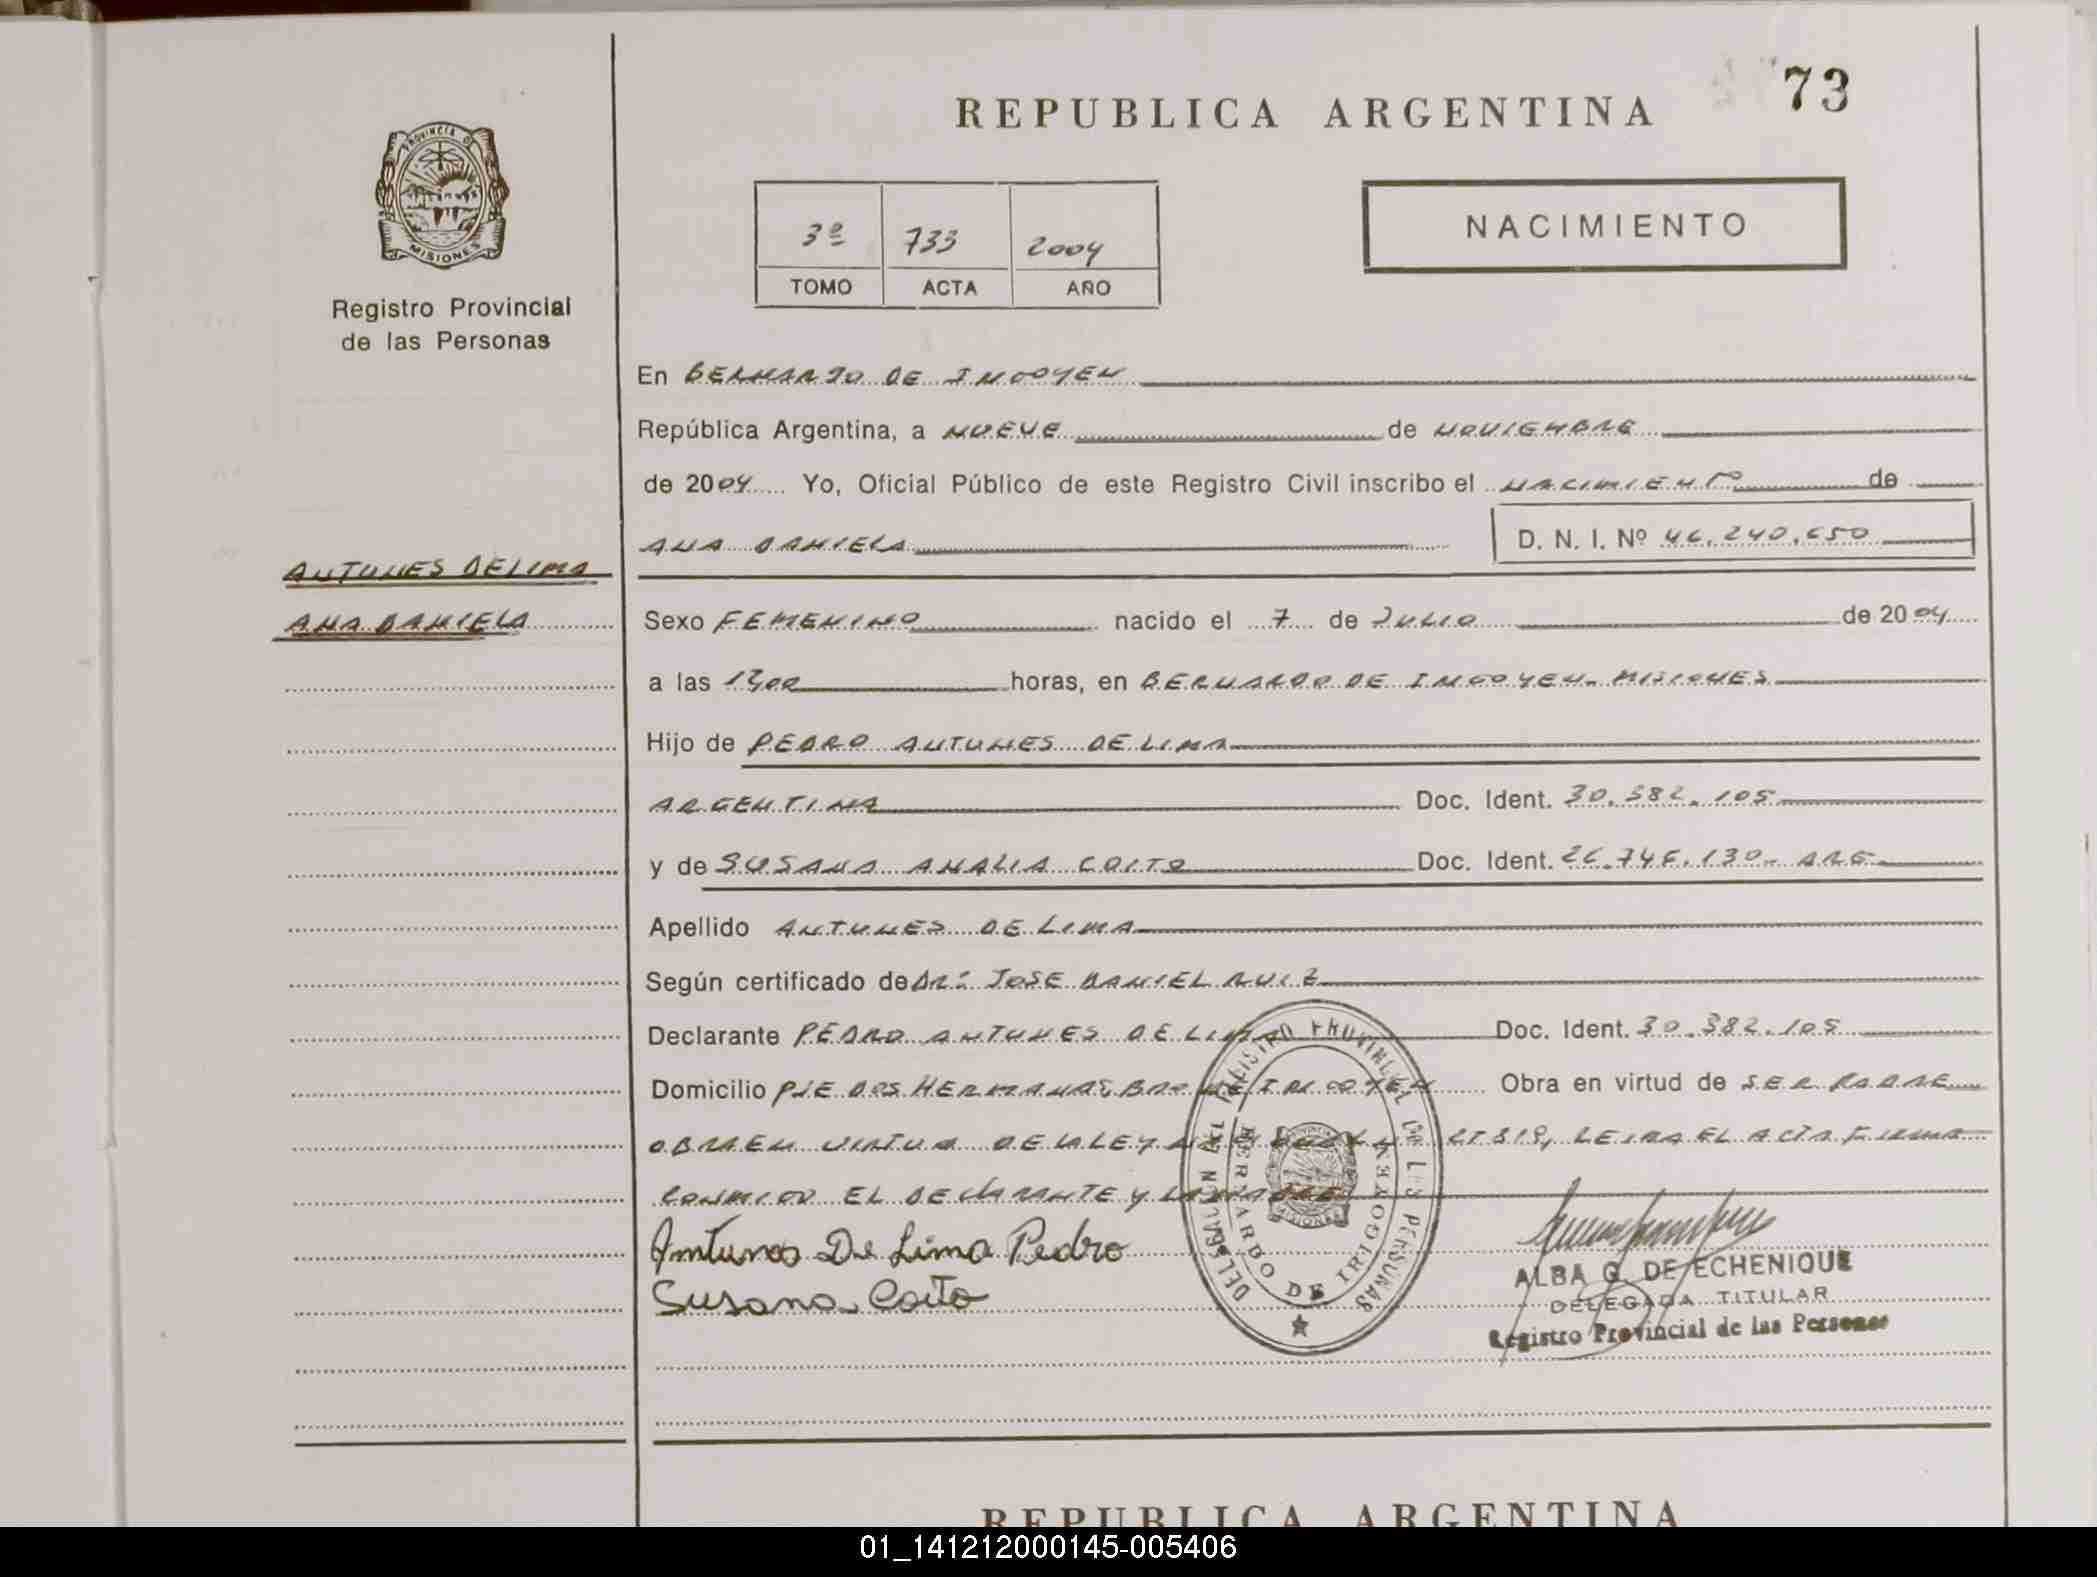 73
REPUBLICA ARGENTINA
NACIMIENTO
PROVINCIA DE
MISIONES
Registro Provincial
de las Personas
3º 733 2004
TOMO ACTA AÑO
En BERNARDO DE IRIGOYEN
República Argentina, a NUEVE de NOVIEMBRE
de 2004 Yo, Oficial Público de este Registro Civil inscribo el NACIMIENTO de
ANA DANIELA D. N. I. Nº 46.240.650
ANTUNES DE LIMA
ANA DANIELA
Sexo FEMENINO nacido el 7 de JULIO de 2004
a las 1300 horas, en BERNARDO DE IRIGOYEN. MISIONES
Hijo de PEDRO ANTUNES DE LIMA
ARGENTINA Doc. Ident. 30.382.105
y de SUSANA ANALIA COITO Doc. Ident. 26.746.130- ARG
Apellido ANTUNES DE LIMA
Según certificado de DR. JOSE DANIEL RUIZ
Declarante PEDRO ANTUNES DE LIMA Doc. Ident. 30.382.105
Domicilio PJE DOS HERMANAS BDO DE IRIGOYEN Obra en virtud de SER PADRE
OBRA EN VIRTUD DE LA LEY LEIDA EL ACTA FIRMA
CONMIGO EL DECLARANTE Y LA MADRE
Antunes De Lima Pedro
Susana Coito
DELEGACION DEL REGISTRO PROVINCIAL DE LAS PERSONAS
BERNARDO DE IRIGOYEN
ALBA G. DE ECHENIQUE
DELEGADA TITULAR
Registro Provincial de las Personas
REPUBLICA ARGENTINA
01_141212000145-005406